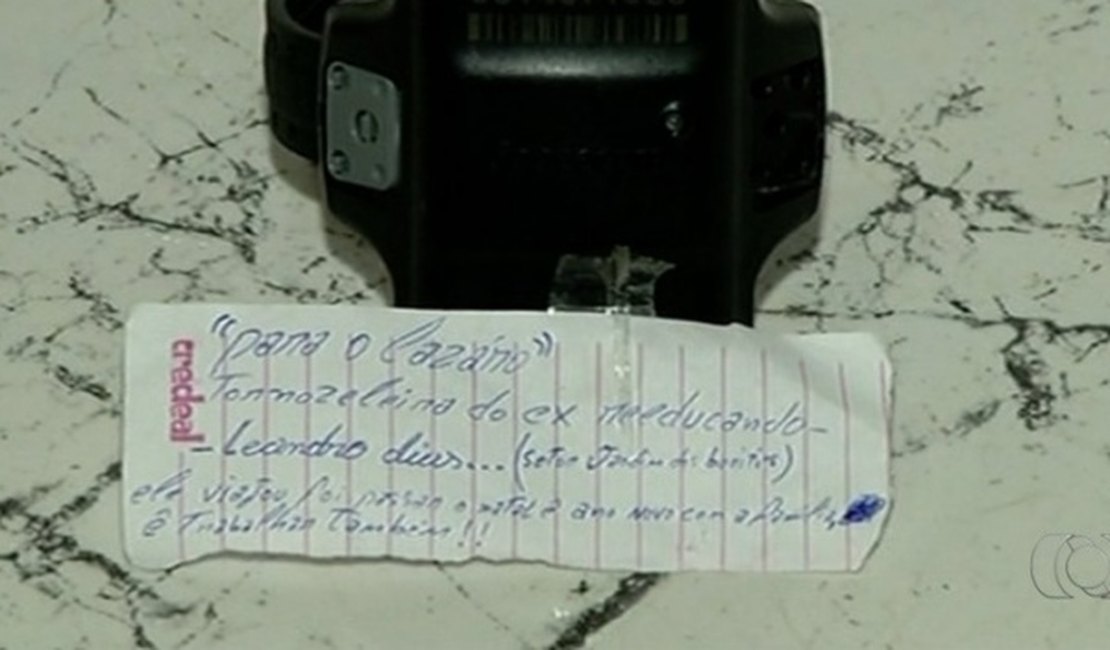 credeal
"para o lazáro"
Tornozeleira do ex reeducando-
-Leandro dias... (setor Jardim dos buritis)
ele viajou foi passar o natal e ano novo com a família
e Trabalhar também!!